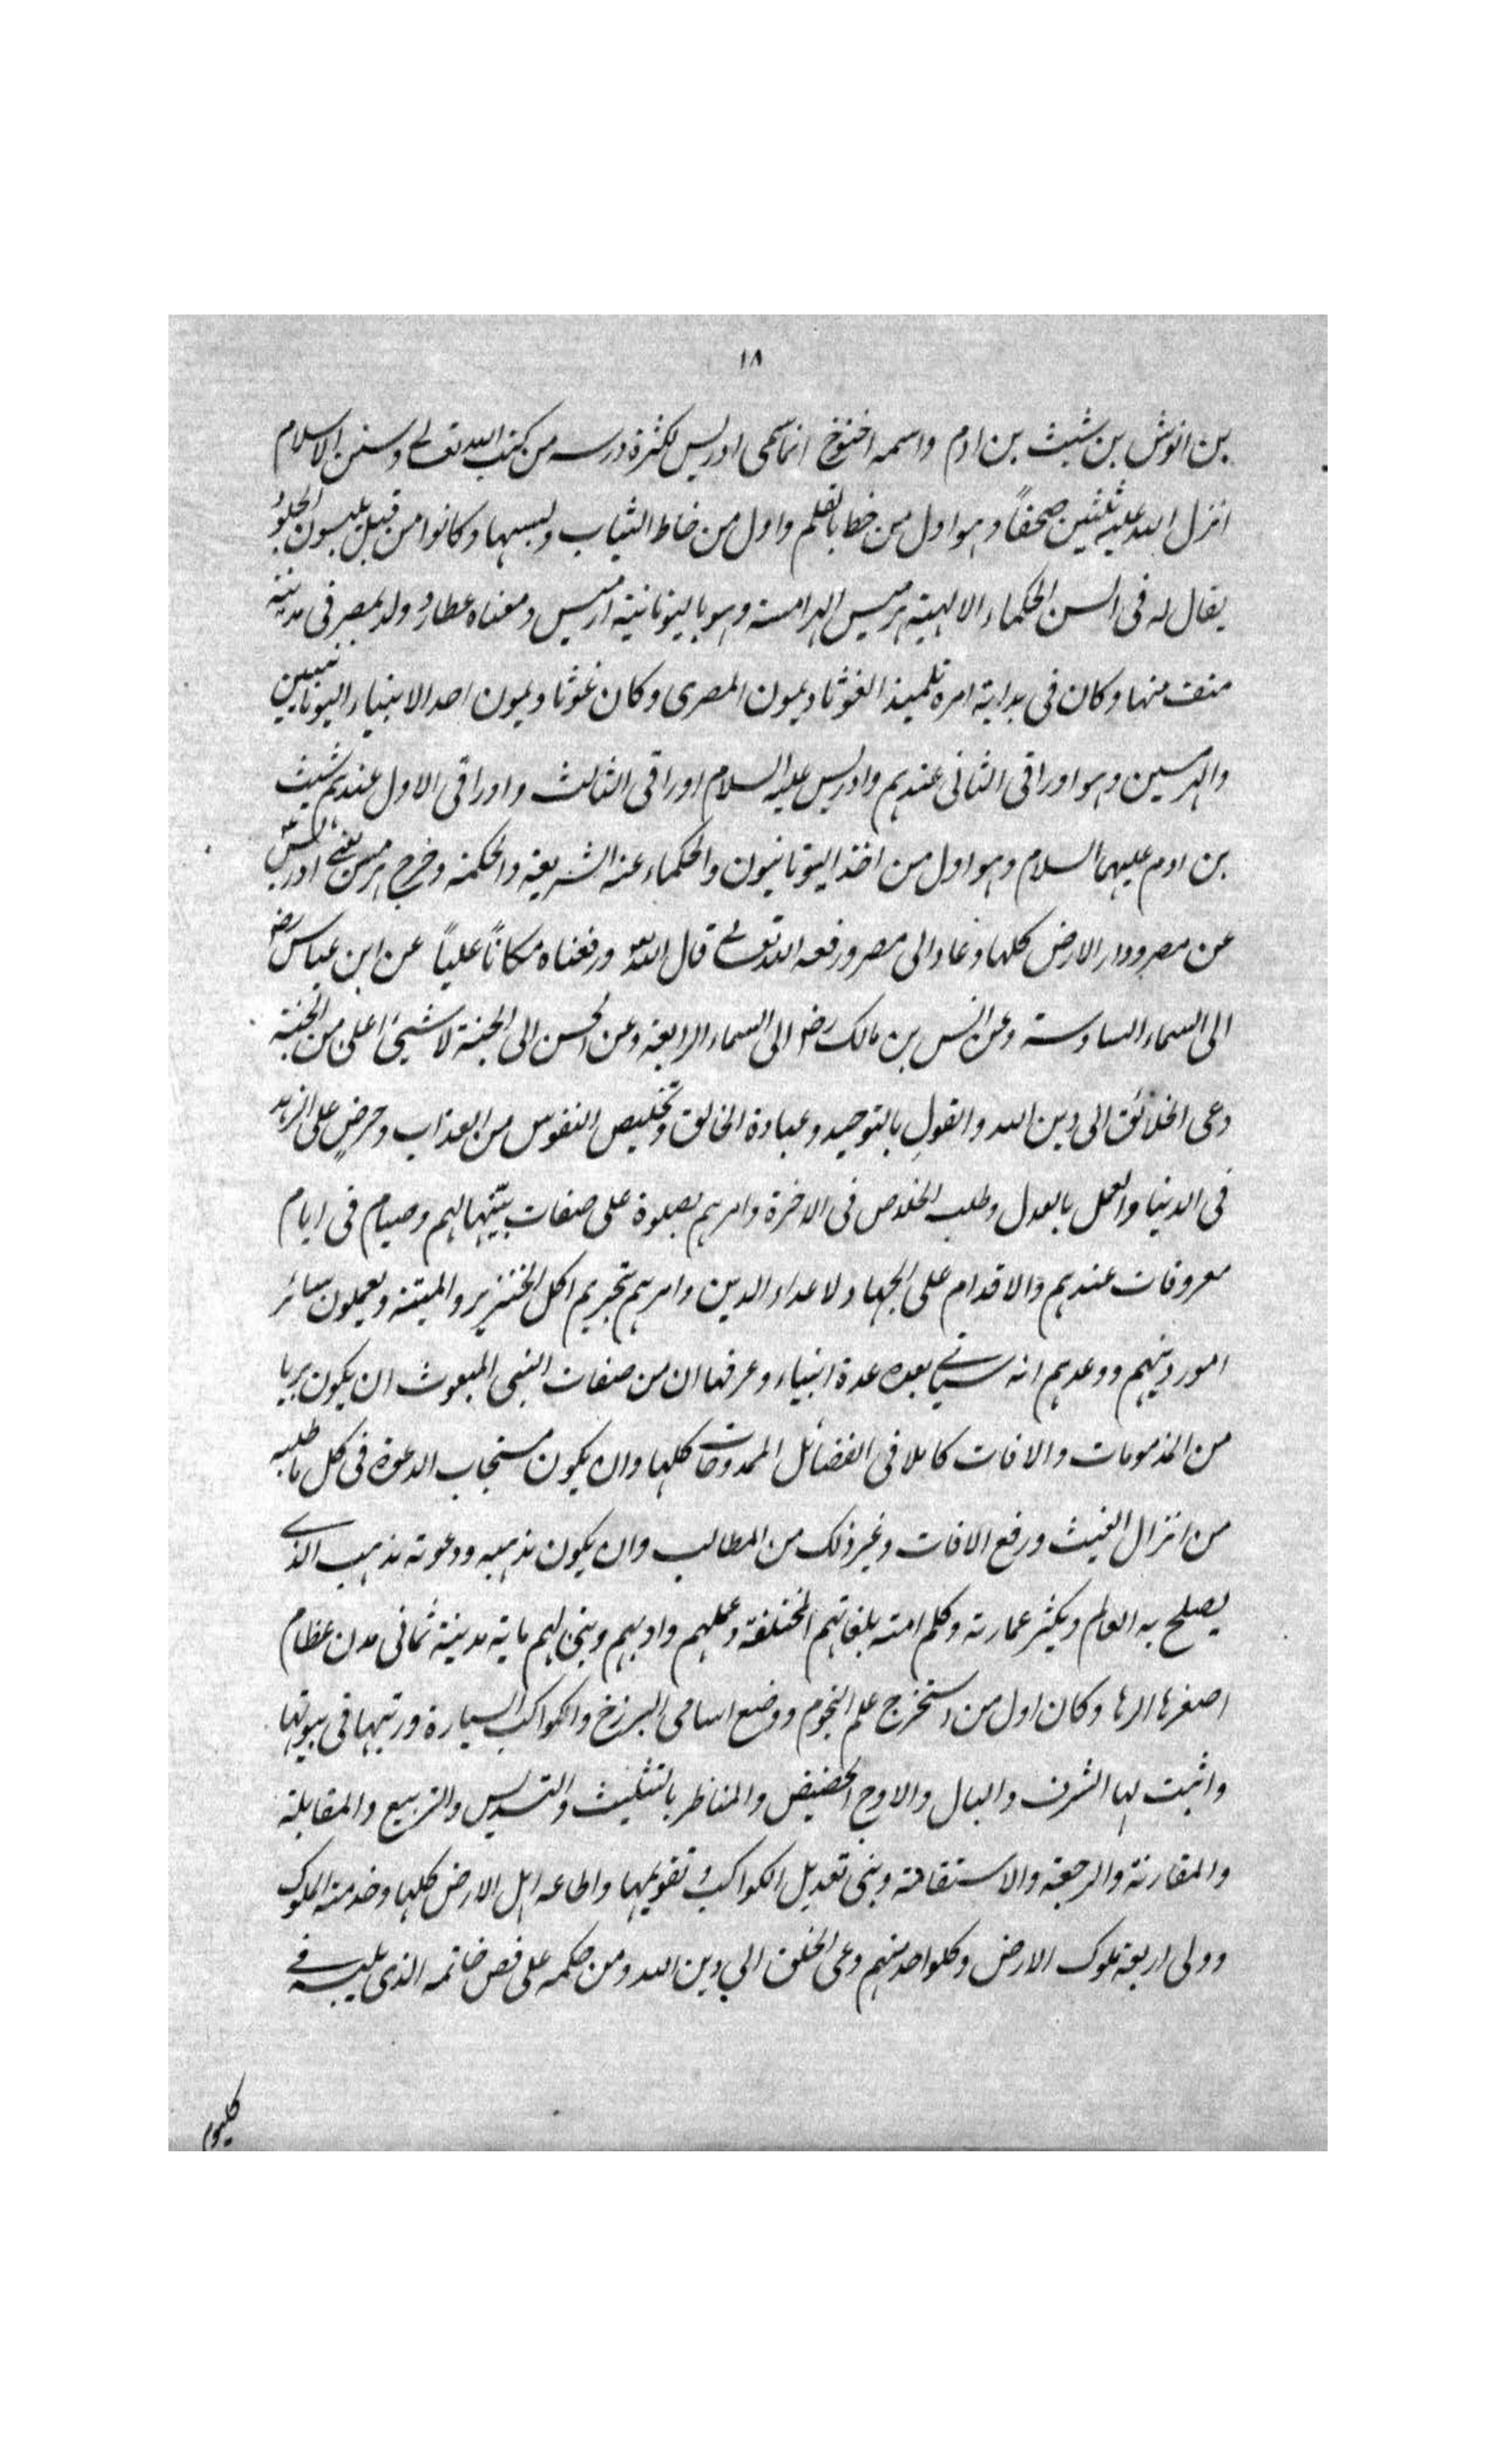 ١٨
بن انوش بن شیث بن ادم واسمه اخنوخ انما سمی ادریس لکثرة درسه من کتب الله تعالے وسنن الاسلام
انزل الله علیه ثلثین صحفاً وهو اول من خط بالقلم واول من خاط الثیاب ولبسها وکانوا من قبل یلبسون الجلود
یقال له فی السن الحکماء الالهیة هرمیس الهرامسة وهو بالیونانیة ارمیس ومعناه عطارد ولد بمصر فی مدینة
منف منها وکان فی بدایة امره تلمیذ الغوثا دیمون المصری وکان غوثا ویمون احد الانبیاء الیونانیین
والهرمسین وهو اوراقی الثانی عندهم وادریس علیه السلام اوراقی الثالث واوراقی الاول عندهم شیث
بن ادم علیهما السلام وهو اول من اخذ الیونانیون والحکماء عنه الشریعة والحکمة وخرج هرمس یعنے ادریس
عن مصر ودار الارض کلها وعاد الی مصر ورفعه الله تعالے قال الله ورفعناه مکاناً علیاً عن ابن عباس رض
الی السماء السادسة وعن انس بن مالک رض الی السماء الرابعة وعن الحسن الی الجنة لا شیئ اعلی من الجنة
دعی الخلائق الی دین الله والقول بالتوحید وعبادة الخالق وتخلیص النفوس من العذاب وحرض علی الزهد
فی الدنیا والعمل بالعدل وطلب الخلاص فی الاخرة وامرهم بصلوة علی صفات بیّنها لهم وصیام فی ایام
معروفات عندهم والاقدام علی الجهاد لاعداء الدین وامرهم بتحریم اکل الخنزیر والمیتة ویعملون سائر
امور دینهم ووعدهم انه سیاتے بعده عدة انبیاء وعرفها ان من صفات النبی المبعوث ان یکون بریا
من المذمومات والافات کاملا فی الفضائل الممدوحات کلها وان یکون مستجاب الدعوة فی کل ما طلبه
من انزال الغیث ورفع الافات وغیر ذلک من المطالب وان یکون مذهبه ودعوته مذهب الذے
یصلح به العالم ویکثر عمارته وکلم امته بلغاتهم المختلفة وعلمهم وادبهم وبنی لهم مایة مدینة ثمانی مدن عظام
اصغرها الرها وکان اول من استخرج علم النجوم ووضع اسامی البرزخ والکواکب السیارة ورتبها فی بیوتها
واثبت لها الشرف والبال والاوج الحضیض والمناظر بالتثلیث والتسدیس والتربیع والمقابلة
والمقارنة والرجعة والاستقامة وبنی تعدیل الکواکب وتقویمها واطاعه اهل الارض کلها وخدمته الملوک
وولی اربعة ملوک الارض وکلواحد منهم دعی الخلق الی دین الله ومن حکمه علی فص خاتمه الذی یلبسه فے